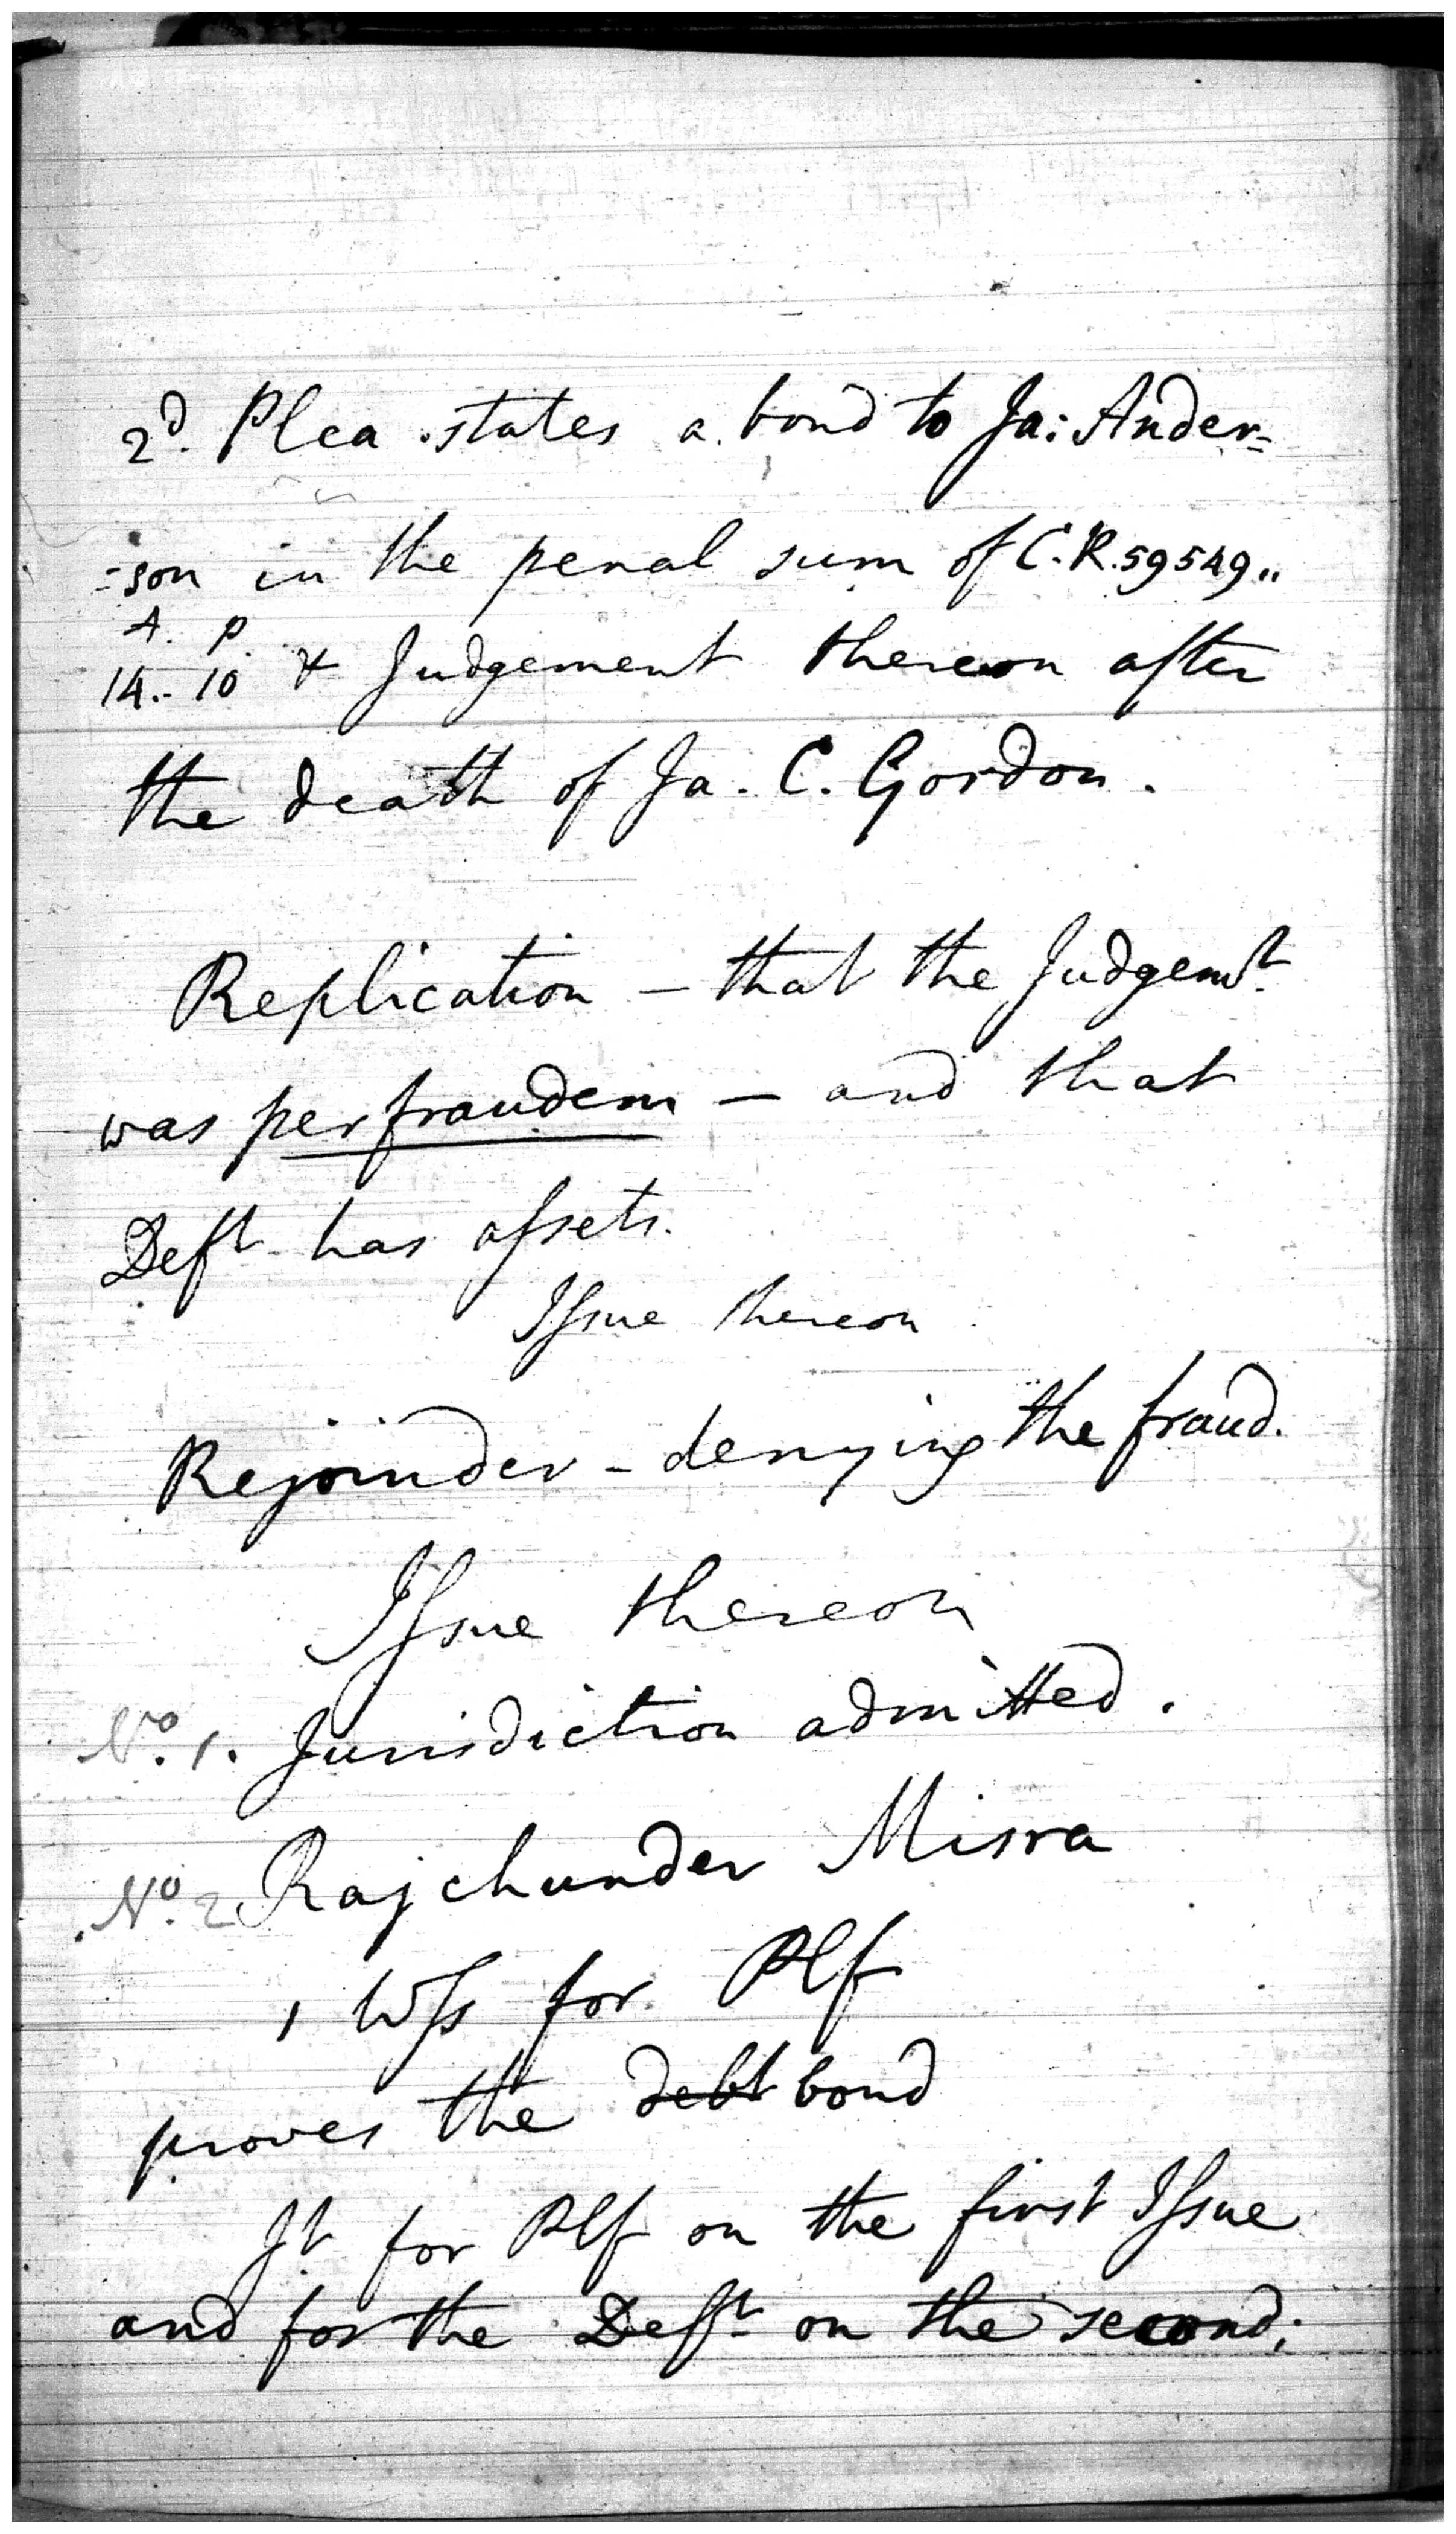 2d. Plea states a bond to Ja: Ander=
=son in the penal sum of C.R. 59549„
A. P.
14.. 10 & Judgement thereon after
the death of Ja. C. Gordon.
Replication – that the Judgemt.
was per fraudem – and that
Deft. has assets.
Issue thereon
Rejoinder – denying the fraud.
Issue thereon
No. 1. Jurisdiction admitted.
No. 2 Rajchunder Misra
1 Wss for Plf
proves the debt bond
Jt. for Plf on the first Issue
and for the Deft. on the second;